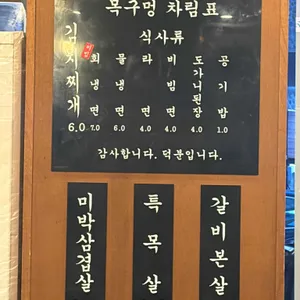 목구멍 차림표
식사류
김치찌개 6.0
회냉면 7.0
물냉면 6.0
라면 4.0
비빔면 4.0
도가니된장 4.0
공기밥 1.0
감사합니다. 덕분입니다.
미박삼겹살
특목살
갈비본살